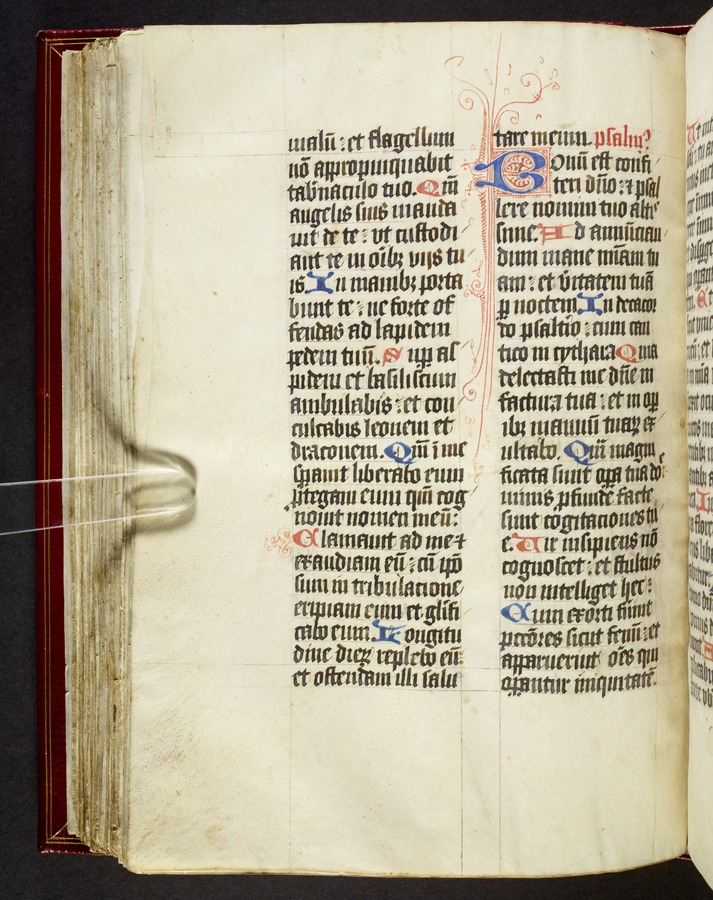 malū : et flagellum
nō appropinquabit
tab'naculo tuo. Qm̄
angelis suis manda
uit de te : vt custodi
ant te in oīb; vijs tu
is. In manib; porta
bunt te : ne forte of
fendas ad lapidem
pedem tuū. Sup as
pidem et basiliscum
ambulabis : et con
culcabis leonem et
draconem. Qm̄ ī me
sperauit liberabo eum
p̄tegam eum qm̄ cog
nouit nomen meū :
Clamauit ad me ⁊
exaudiam eū : cū ip̄o
sum in tribulacione
eripiam eum et gl̄ifi
cabo eum. Longitu
dine dieꝝ replebo eū :
et ostendam illi salu
tare meum. psalm9
Bonū est confi
teri dn̄o : ⁊ psal
lere nomini tuo altis
sime. Ad annūcian
dum mane mīam tu
am : et v̄itatem tuā
p noctem. In decacor
do psaltīo : cum can
tico in cythara Quia
delectasti me dn̄e in
factura tua : et in op̄
ib; manuū tuaꝝ ex
ultabo. Qm̄ magni
ficata sunt op̄a tua do
mine : nimis p̄funde facte
sunt cogitaciones tu
e. Uir insipiens nō
cognoscet : et stultus
non intelliget hec :
Cum exorti fūint
pccōres sicut fenū : et
apparuerint oēs qui
op̄antur iniquitatē.